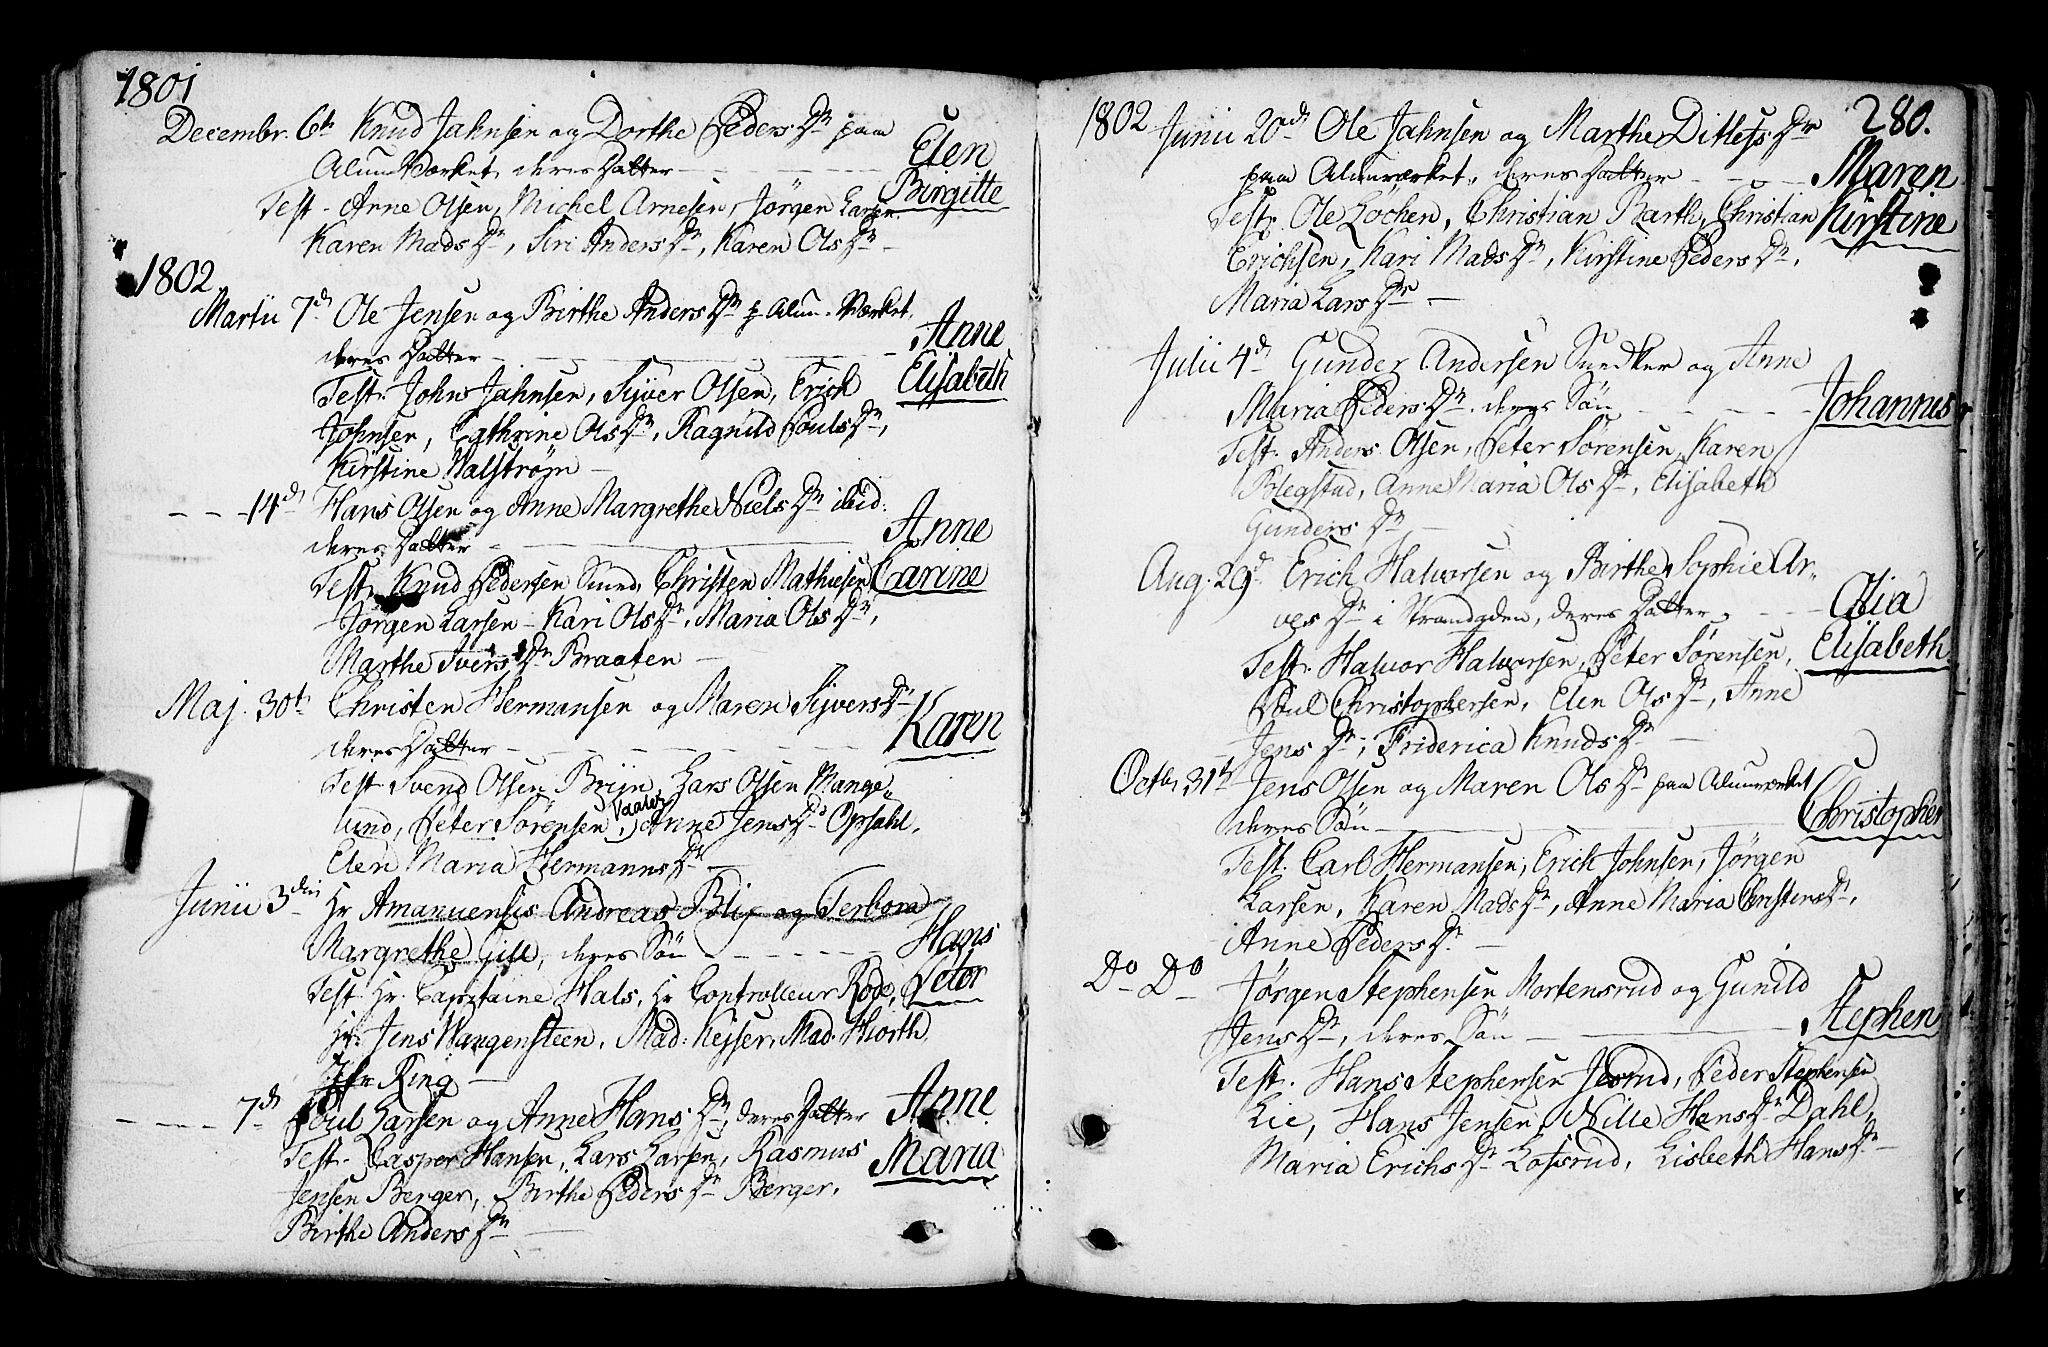 1801
Decembr. 6te Knud Jahnsen og Dorthe Peders Dr paa
Alun Værket, deres Datter - - - Elen
Birgitte
Test. Anne Olsen, Michel Arnesen, Jörgen Larsen
Karen Mads Dr, Siri Anders Dr, Karen Ols Dr -
1802.
Martii 7d Ole Jensen og Birthe Anders Dr p Alun-Værket,
deres Datter - - - Anne
Elisabeth
Test. Johns Jahnsen, Syver Olsen, Erich
Johnsen, Cathrine Ols Dr, Ragnild Pouls Dr,
Kirstine Walströjn -
- - - 14d Hans Olsen og Anne Margrethe Niels Dr ibid.
deres Datter - - - Anne
Carine
Test. Knud Pedersen Smed, Christen Mathiesen
Jörgen Larsen - Kari Ols Dr, Maria Ols Dr,
Marthe Svens Dr Braaten -
Maj. 30te Christen Hermansen og Maren Syvers Dr
deres Datter - - - Karen
Test Svend Olsen Bryn, Lars Olsen Mange„
lund, Peter Sörensen Vaaler, Anne Jens Dr Opsahl.
Elen Maria Hermanns Dr -
Junii 3dii Hr Amanuensis Andreas Blix og Terbora
Margrethe Gill, deres Sön - - - Hans
Peter
Test Hr. Capitaine Hals, Hr Controlleur Rode,
Hr. Jens Wangensteen, Mad: Kejser, Mad. Hiorth
Jfr Ring -
- - - 7d Poul Larsen og Anne Hans Dr, deres Datter Anne
Maria
Test. Casper Hansen, Lars Larsen, Rasmus
Jensen Berger, Birthe Peders Dr Berger,
Birthe Anders Dr -
280.
1802 Junii 20d Ole Jahnsen og Marthe Ditlefs Dr
paa Alunværket, deres Datter - - - Maren
Kirstine
Test. Ole Löchen, Christian Barth, Christian
Erichsen, Kari Mads Dr, Kirstine Peders Dr,
Maria Lars Dr -
Julii 4d Gunder Andersen Snedker og Anne
Maria Peders Dr, deres Sön - - - Johannes
Test. Anders Olsen, Peter Sörensen, Karen
Blegstad, Anne Maria Ols Dr, Elisabeth
Gunders Dr -
Aug. 29d Erich Halvorsen og Birthe Sophie Ar„
ves Dr i Strandgden, deres Datter, - - - Olia
Elisabeth
Test. Halvor Halvorsen, Peter Sörensen,
Poul Christophersen, Elen Ols Dr, Anne
Jens Dr, Friderica Knuds Dr -
Octbr 31te Jens Olsen og Maren Ols Dr paa Alunværket
deres Sön - - - Christopher
Test. Carl Hermansen, Erich Johnsen, Jörgen
Larsen, Karen Mads Dr, Anne Maria Christens Dr,
Anne Peders Dr -
Do Do Jörgen Stephensen Mortensrud og Gunild
Jens Dr, deres Sön - - - Stephen
Test. Hans Stephensen Jesrud, Peder Stephensen
Lie, Hans Jensen, Nille Hans Dr Dahl,
Maria Erichs Dr Lofsrud, Lisbeth Hans Dr -